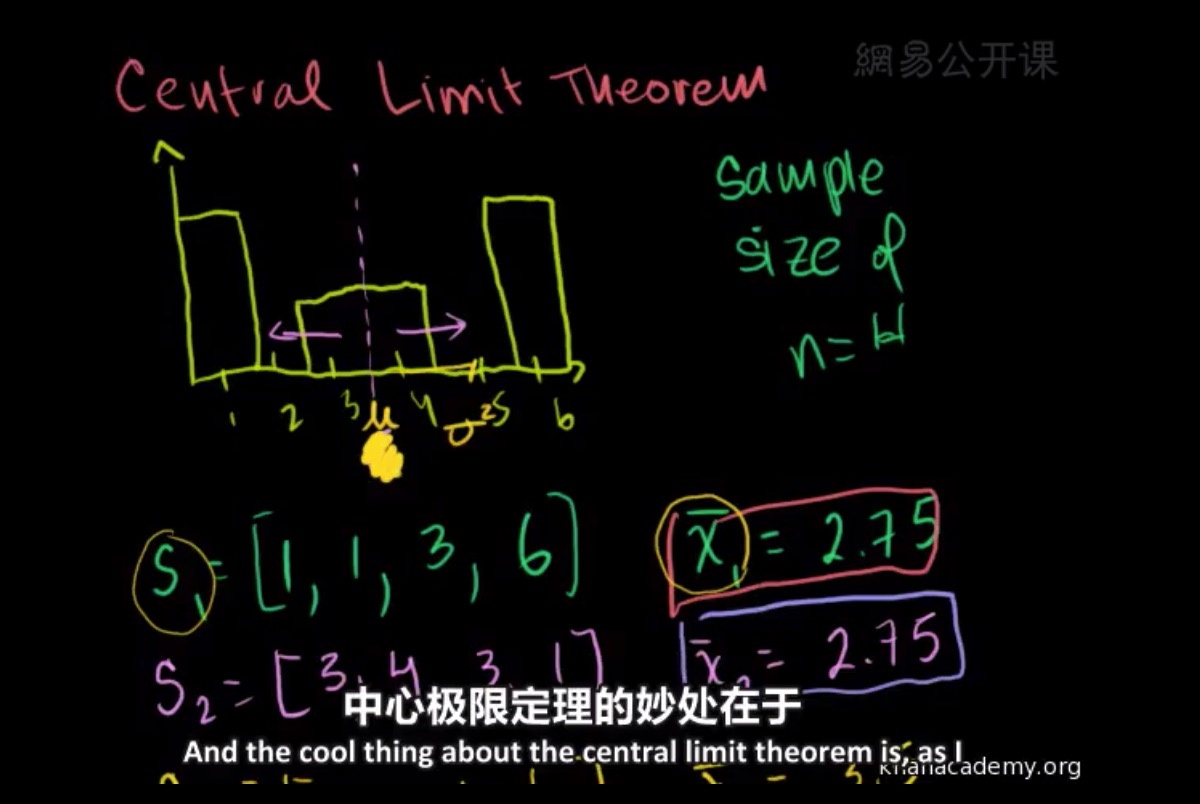 網易公开课
Central Limit Theorem
sample
size of
n=4
1 2 3 μ 4 σ² 5 6
S₁ = [1, 1, 3, 6]
x̄₁ = 2.75
S₂ = [3, 4, 3, 1]
x̄₂ = 2.75
中心极限定理的妙处在于
And the cool thing about the central limit theorem is, as I
khanacademy.org